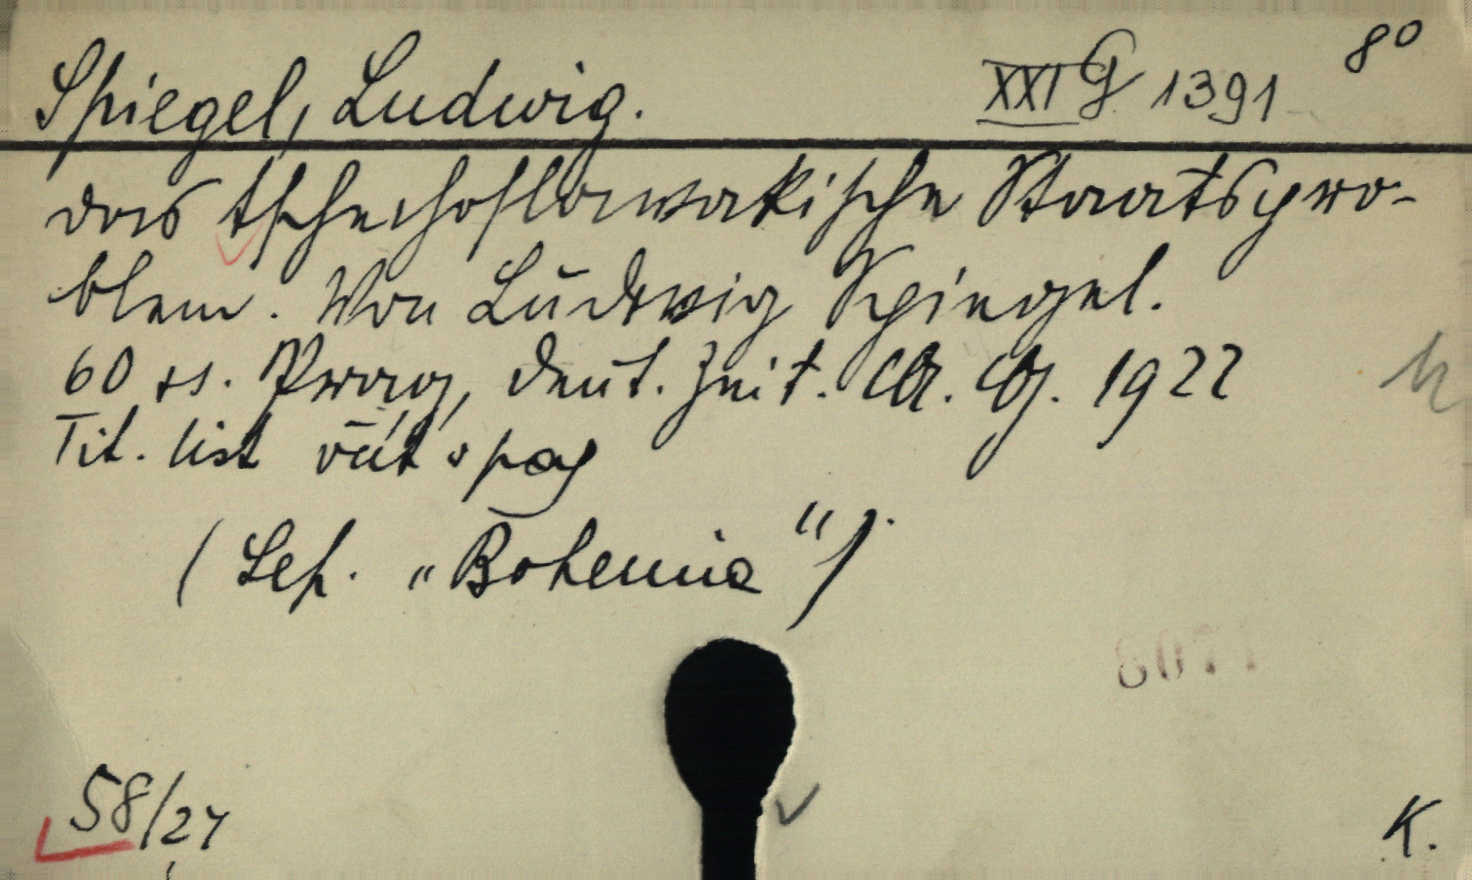 Spiegel, Ludwig.
XXI G 1391
8⁰
das tschechoslowakische Staatspro-
blem. Von Ludwig Spiegel.
60 ss. Prag, Deut. Zeit. A. G. 1922
Tit. list
(Sep. „Bohemia“).
8071
58/27
K.